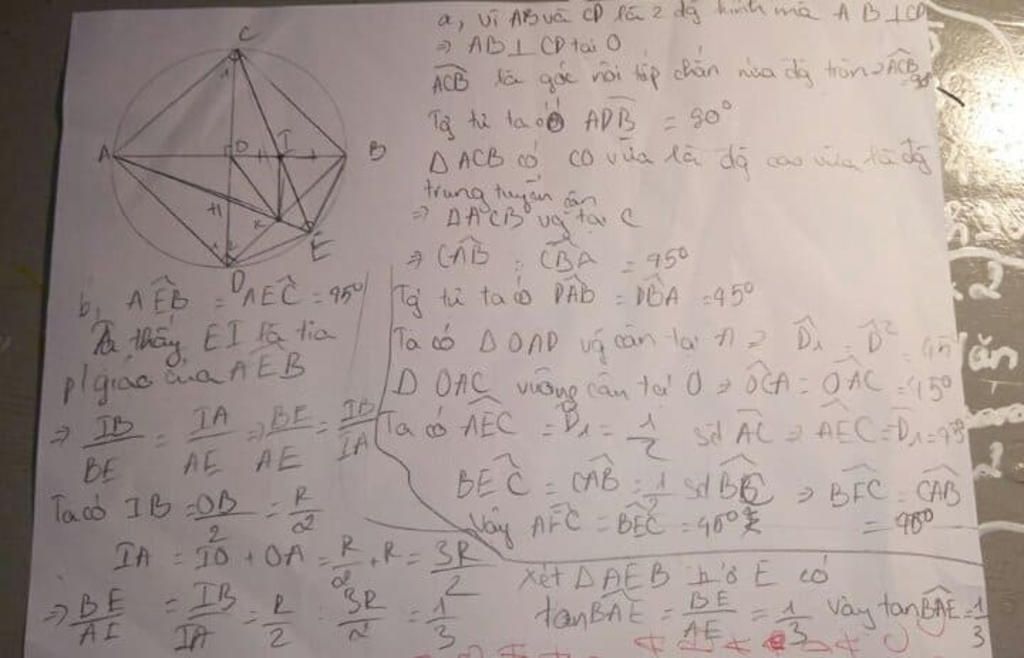 C
A
O
I
B
K
E
D
a, vì AB và CD là 2 đg kính mà AB⊥CD
⇒ AB⊥CD tại O
ACB là góc nội tiếp chắn nửa đg tròn ⇒ ACB = 90°
Tg tự ta có ADB = 90°
Δ ACB có CO vừa là đg cao vừa là đg
trung tuyến
⇒ ΔACB cân vg tại C
⇒ CAB = CBA = 45°
Tg tự ta có DAB = DBA = 45°
Ta có Δ OAD vg cân tại O ⇒ D1 = D2 = 45°
Δ OAC vuông cân tại O ⇒ OCA = OAC = 45°
Ta có AEC = D1 = 1/2 sđ AC ⇒ AEC = D1 = 45°
BEC = CAB = 1/2 sđ BC ⇒ BEC = CAB
= 45°
Vậy AEC = BEC = 45°
b, AEB = AEC = 45°
Ta thấy EI là tia
p/giác của AEB
⇒ IB/BE = IA/AE ⇒ BE/AE = IB/IA
Ta có IB = OB/2 = R/2
IA = IO + OA = R/2 + R = 3R/2
⇒ BE/AE = IB/IA = R/2 : 3R/2 = 1/3
Xét ΔAEB ở E có
tan BAE = BE/AE = 1/3 Vậy tan BAE = 1/3